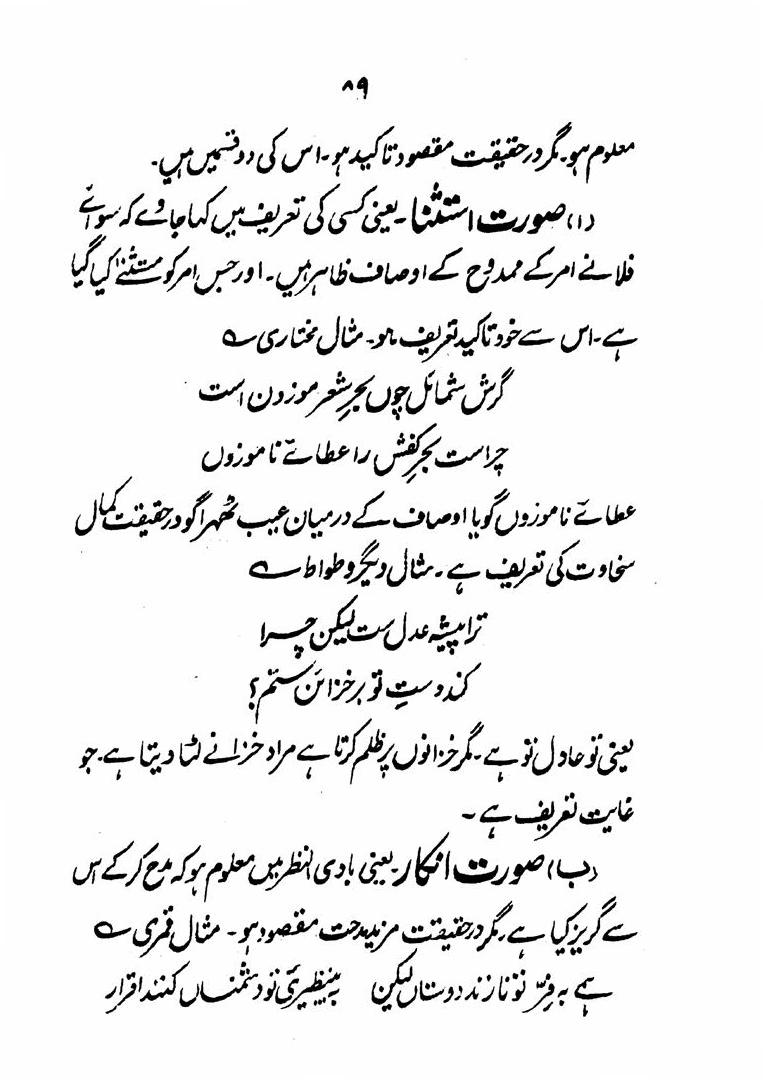 ۸۹
معلوم ہو۔ مگر در حقیقت مقصود تاکید ہو۔ اس کی دو قسمیں ہیں۔
(ا) صورت استثنا۔ یعنی کسی کی تعریف میں کہا جاوے کہ سوائے
فلانے امر کے ممدوح کے اوصاف ظاہر ہیں۔ اور جس امر کو مستثنےٰ کیا گیا
ہے۔ اس سے خود تاکید تعریف ہو۔ مثال مختاری ؎
گرش شمائل چوں بحرِ شعر موزون است
چراست بحرِ کفش را عطائے ناموزوں
عطائے ناموزوں گویا اوصاف کے درمیان عیب ٹھہرا گو در حقیقت کمال
سخاوت کی تعریف ہے۔ مثال دیگر وطواط ؎
ترا پیشہ عدل ست لیکن چرا
کند دستِ تو بر خزائن ستم؟
یعنی تو عادل تو ہے۔ مگر خزانوں پر ظلم کرتا ہے مراد خزانے لٹا دیتا ہے۔ جو
غایت تعریف ہے۔
(ب) صورت انکار۔ یعنی بادی النظر میں معلوم ہو کہ مدح کر کے اس
سے گریز کیا ہے۔ مگر در حقیقت مزید مدحت مقصود ہو۔ مثال قمری ؎
ہے بہ فرّ تو نازند دوستاں لیکن بہ بینظیریٔ تو دشمناں کنند اقرار